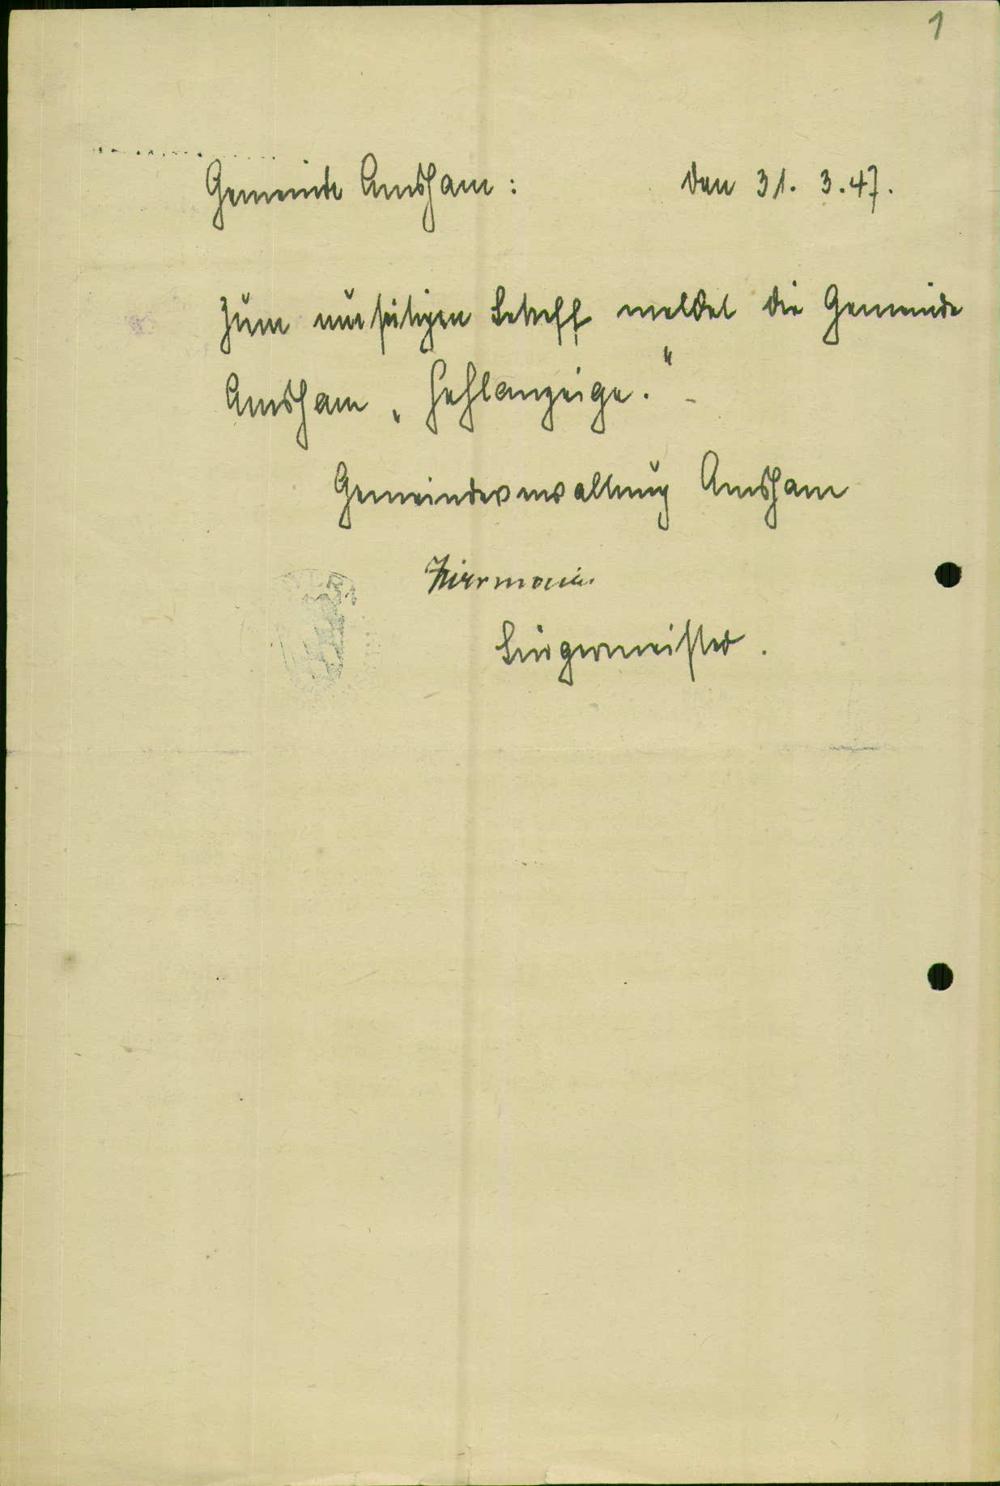 1
Gemeinde Amsham: den 31. 3. 47.
Zum umseitigen Betreff meldet die Gemeinde
Amsham „Fehlanzeige."-
Gemeindeverwaltung Amsham
Bürgermeister.